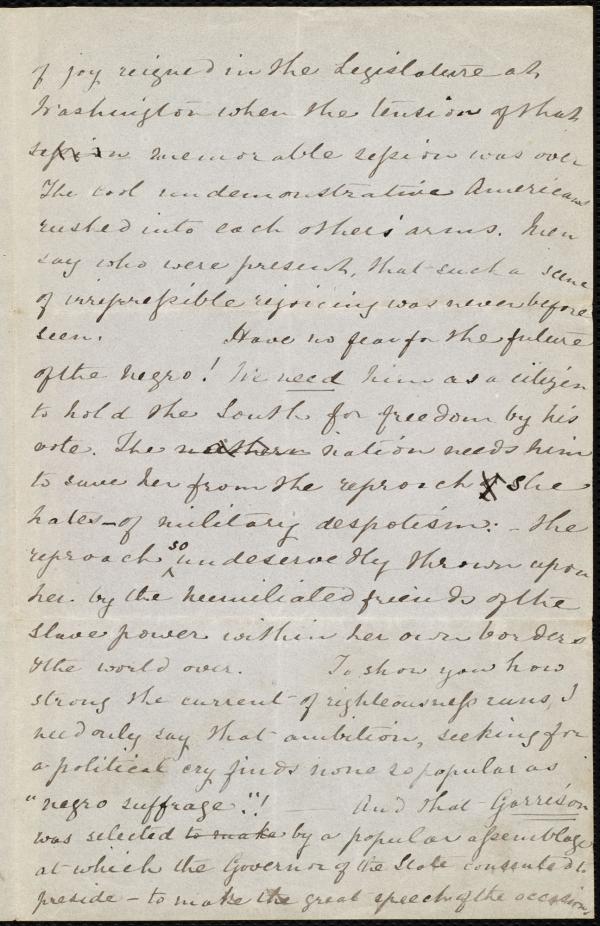 of joy reigned in the Legislature at
Washington when the tension of that
session memorable session was over
The cool undemonstrative Americans
rushed into each others' arms. Men
say who were present, that such a scene
of irrepressible rejoicing was never before
seen. Have no fear for the future
of the negro! We need him as a citizen
to hold the South for freedom by his
vote. The northern nation needs him
to save her from the reproach she
hates - of military despotism: - the
reproach so undeservedly thrown upon
her by the humiliated friends of the
slave power within her own borders
& the world over. To show you how
strong the current of righteousness runs, I
need only say that ambition, seeking for
a political cry finds none so popular as
"negro suffrage"! — And that Garrison
was selected to make by a popular assemblage
at which the Governor of the State consented to
preside - to make the great speech of the occasion,